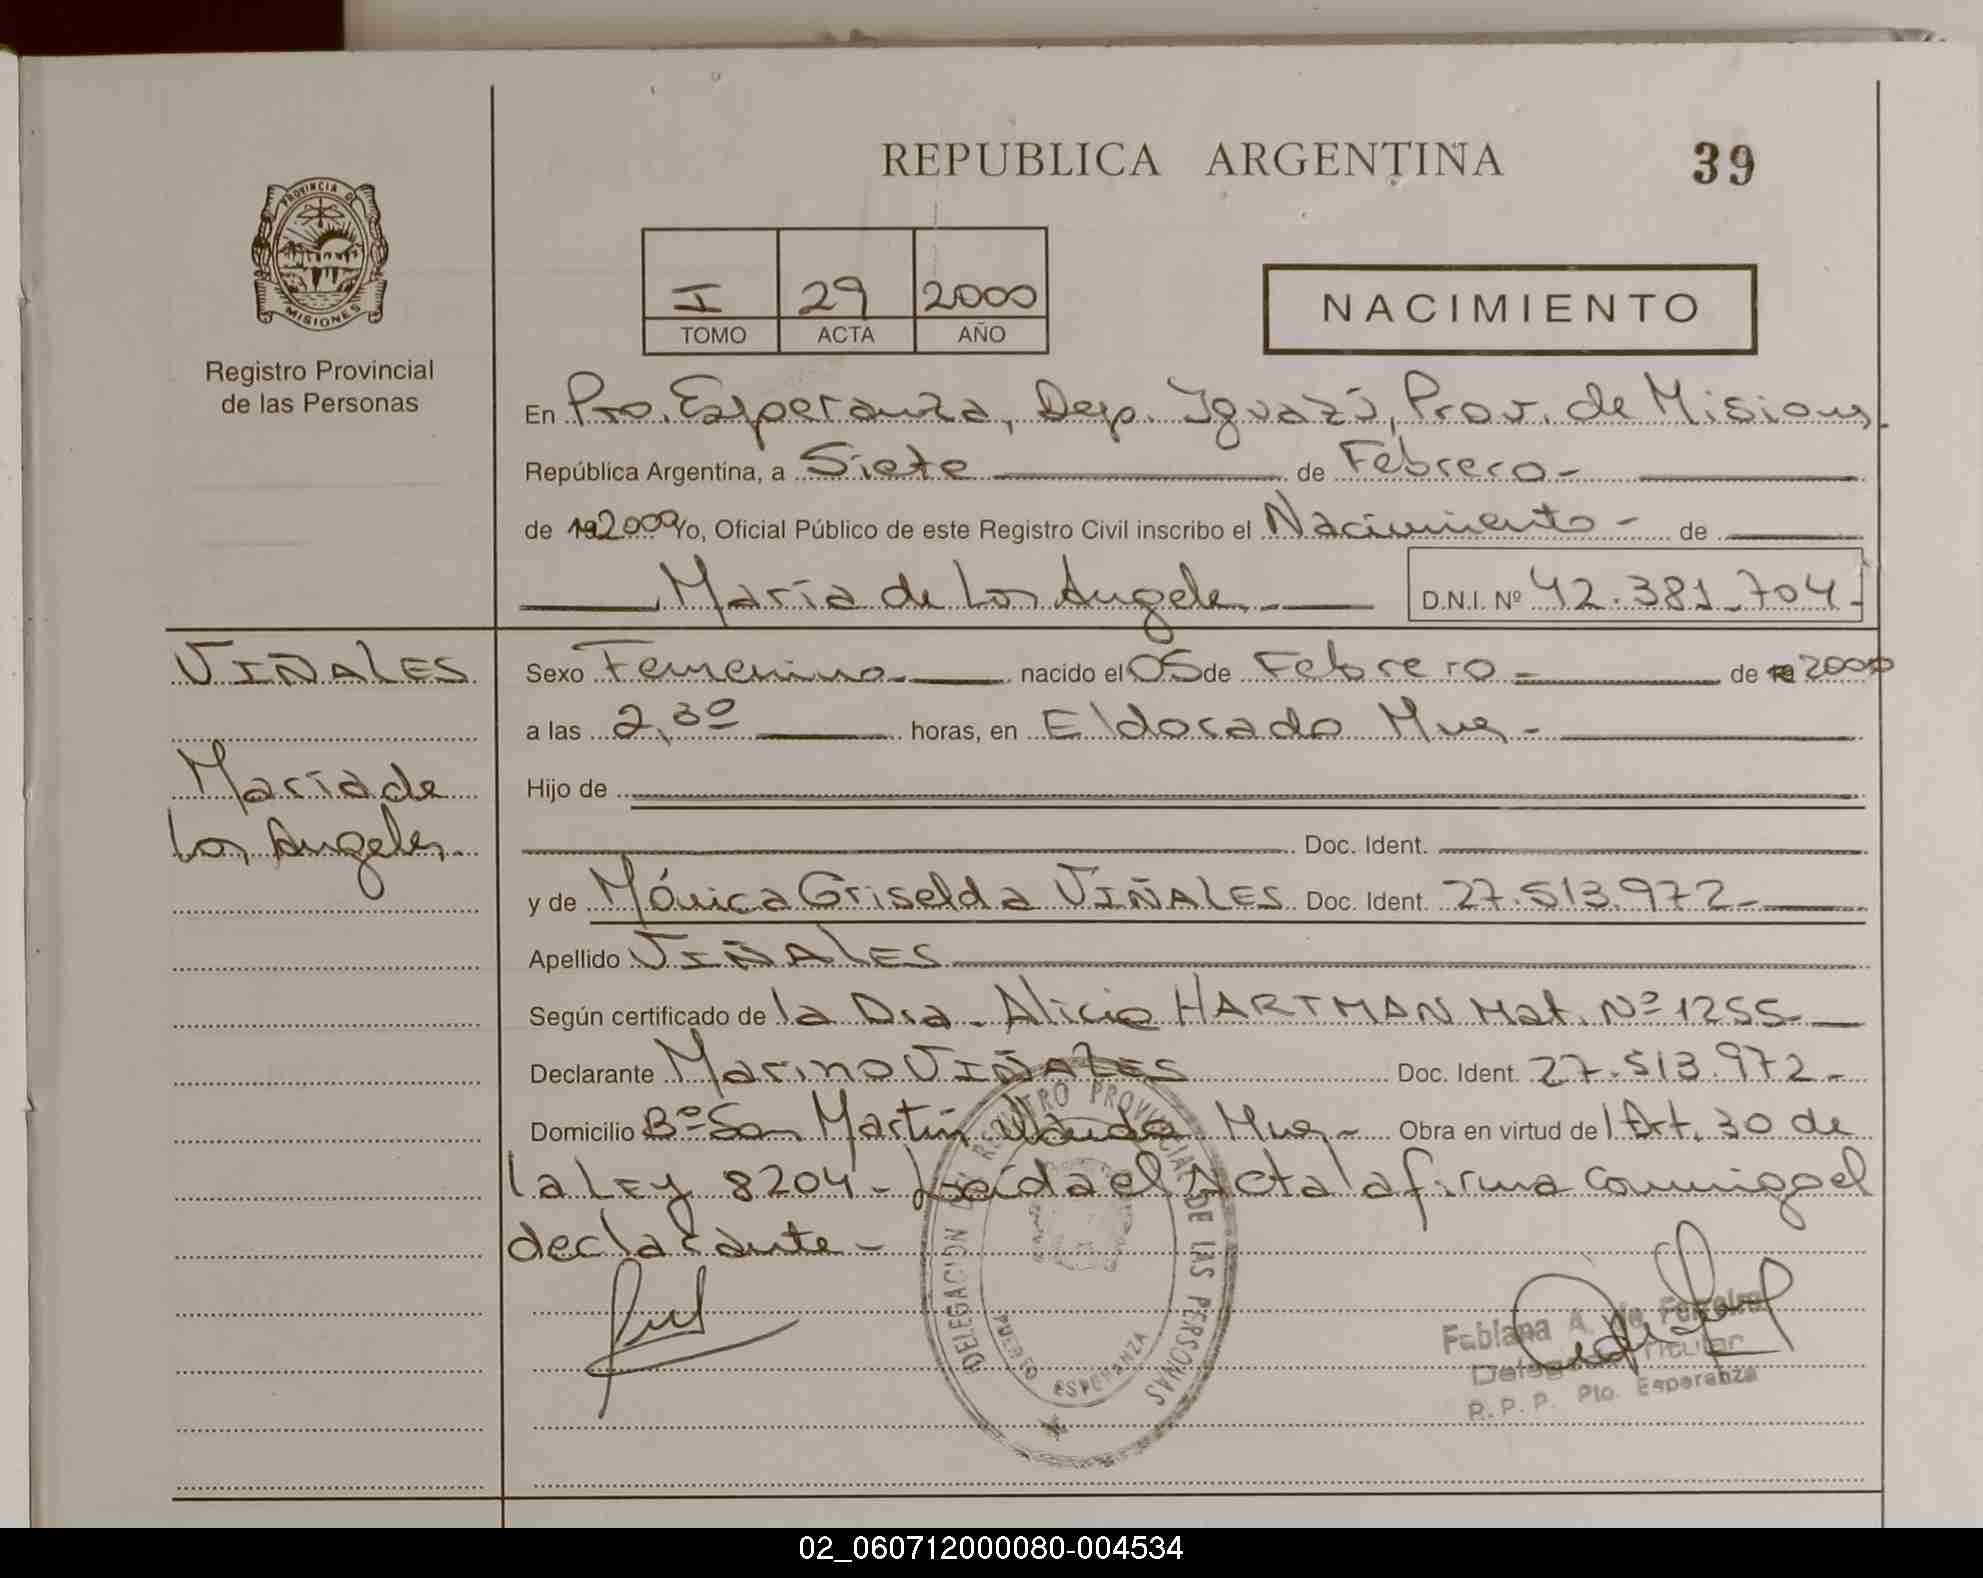 REPUBLICA ARGENTINA
39
PROVINCIA DE
MISIONES
Registro Provincial
de las Personas
I 29 2000
TOMO ACTA AÑO
NACIMIENTO
En Pto. Esperanza, Dep. Iguazú, Prov. de Misiones
República Argentina, a Siete de Febrero-
de 192000 Yo, Oficial Público de este Registro Civil inscribo el Nacimiento - de
María de Los Angeles - D.N.I. Nº 42.381.704-
VIÑALES
Sexo Femenino - nacido el 05 de Febrero - de 19 2000
a las 2,30 horas, en Eldorado Mnes -
María de
Los Angeles
Hijo de
Doc. Ident.
y de Mónica Griselda VIÑALES Doc. Ident. 27.513.972-
Apellido VIÑALES
Según certificado de la Dra. Alicia HARTMAN Mat. Nº 1255-
Declarante Marino VIÑALES Doc. Ident. 27.513.972-
Domicilio Bº San Martín Wanda Mnes - Obra en virtud del Art. 30 de
la LEY 8204 - Leída el Acta la firma conmigo el
declarante -
DELEGACION DE REGISTRO PROVINCIAL DE LAS PERSONAS
PUERTO ESPERANZA
Fabiana A. de Ferreira
Delegada Titular
R.P.P. Pto. Esperanza
02_060712000080-004534